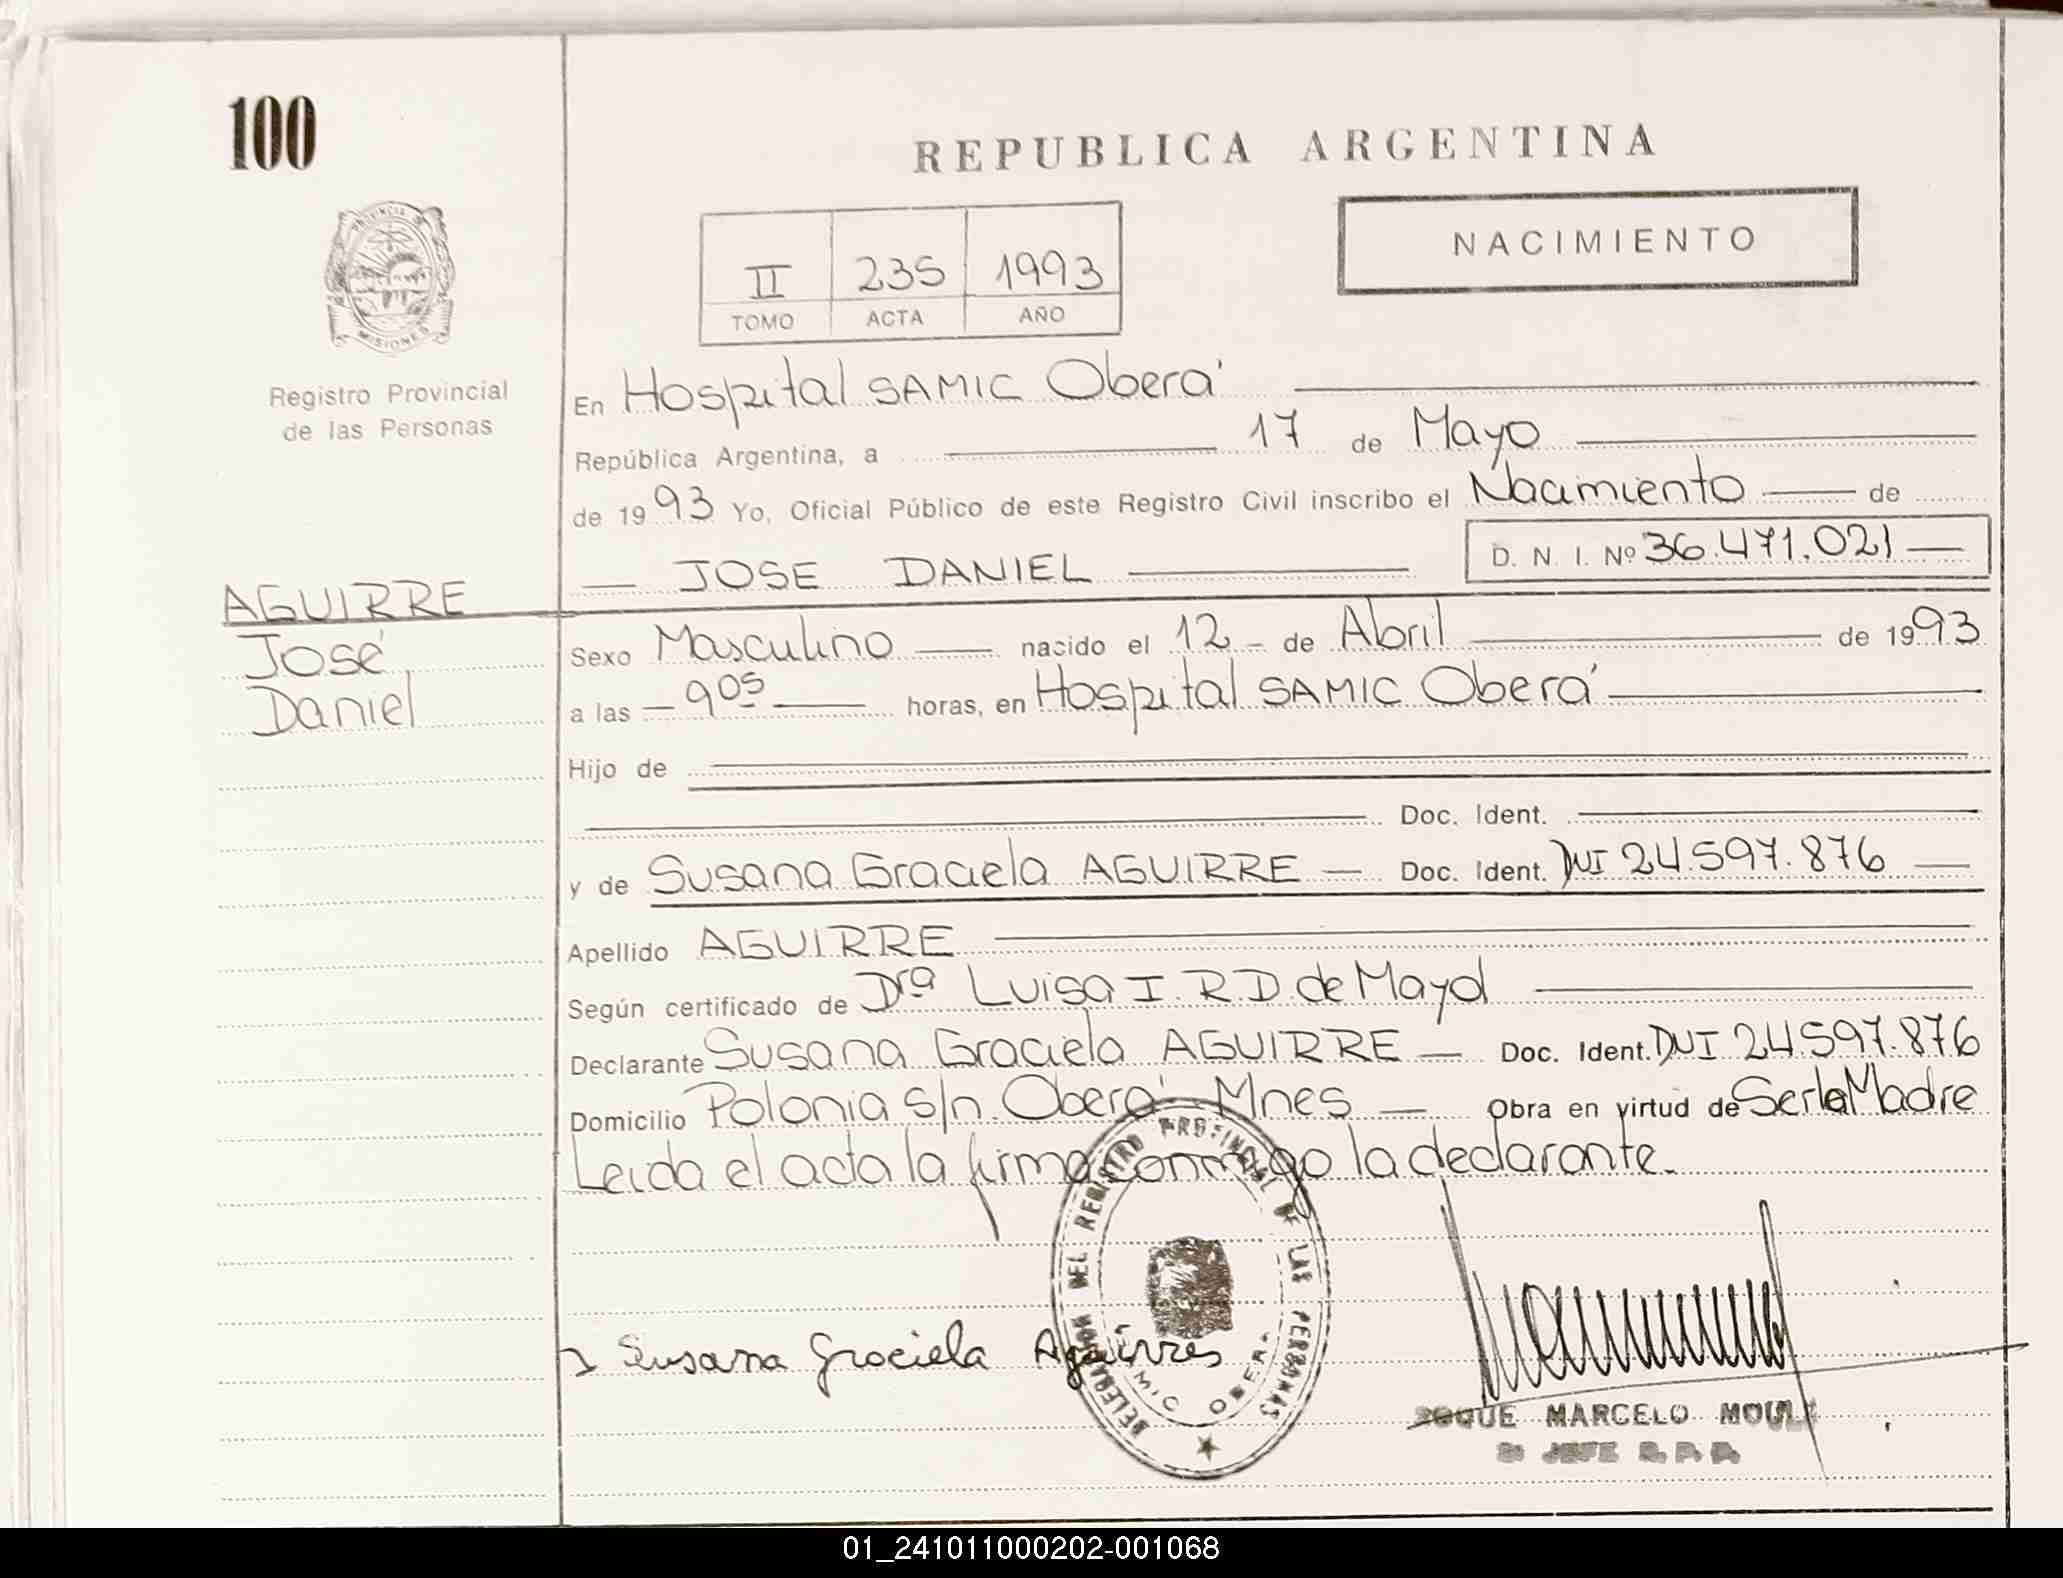 100
REPUBLICA ARGENTINA
NACIMIENTO
II 235 1993
TOMO ACTA AÑO
PROVINCIA DE MISIONES
Registro Provincial
de las Personas
En Hospital SAMIC Oberá
República Argentina, a 17 de Mayo
de 1993 Yo, Oficial Público de este Registro Civil inscribo el Nacimiento de
JOSE DANIEL D. N. I. Nº 36.471.021
AGUIRRE
José
Daniel
Sexo Masculino nacido el 12 de Abril de 1993
a las 9 05 horas, en Hospital SAMIC Oberá
Hijo de
Doc. Ident.
y de Susana Graciela AGUIRRE Doc. Ident. DNI 24.597.876
Apellido AGUIRRE
Según certificado de Dra Luisa I. R. D. de Mayol
Declarante Susana Graciela AGUIRRE Doc. Ident. DNI 24.597.876
Domicilio Polonia s/n. Oberá Mnes Obra en virtud de Ser la Madre
Leida el acta la firma conmigo la declarante.
DELEGACION DEL REGISTRO PROVINCIAL DE LAS PERSONAS
OBERA
Susana Graciela Aguirres
ROQUE MARCELO
JEFE R. P. P.
01_241011000202-001068